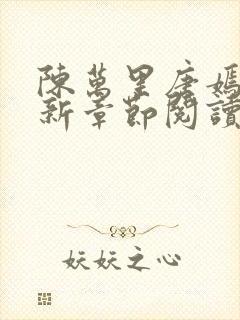 陳萬里唐嫣
新章節閱讀
妖妖之心